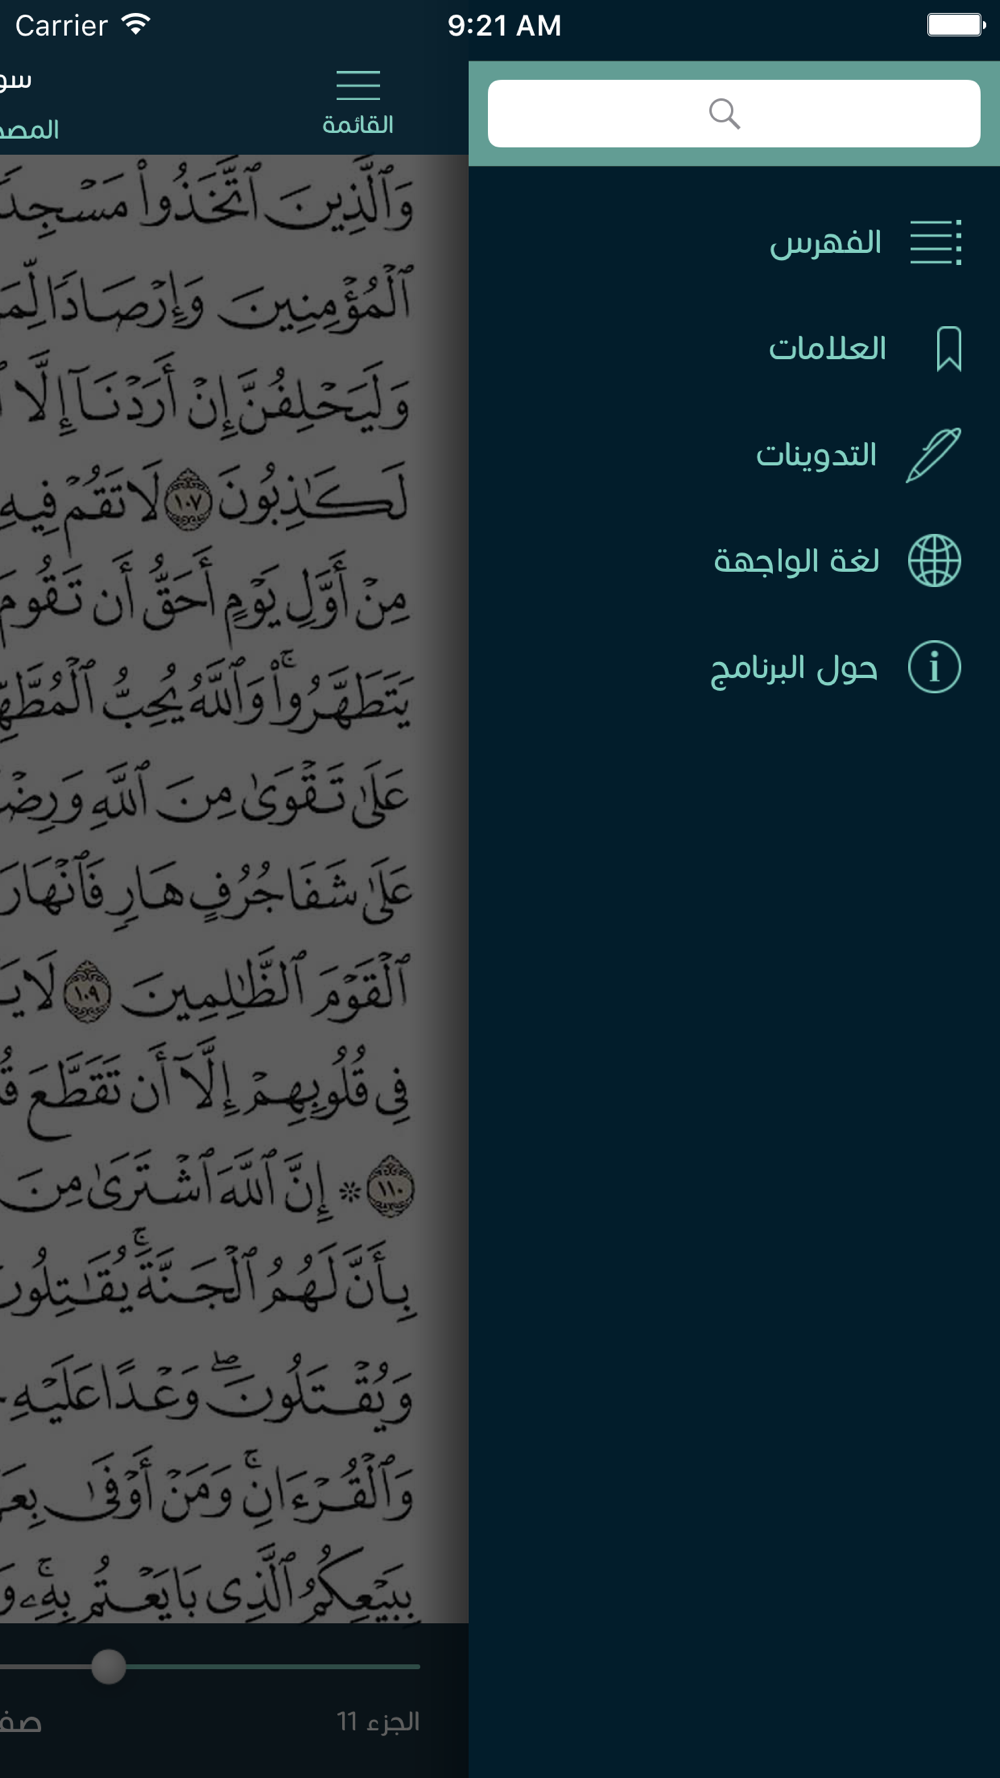 Carrier
9:21 AM
القائمة
الفهرس
العلامات
التدوينات
لغة الواجهة
حول البرنامج
وَٱلَّذِينَ ٱتَّخَذُوا۟ مَسْجِدًا
ٱلْمُؤْمِنِينَ وَإِرْصَادًا
وَلَيَحْلِفُنَّ إِنْ أَرَدْنَآ إِلَّا
لَكَـٰذِبُونَ ١٠٧ لَا تَقُمْ فِيهِ
مِنْ أَوَّلِ يَوْمٍ أَحَقُّ أَن تَقُومَ
يَتَطَهَّرُوا۟ۚ وَٱللَّهُ يُحِبُّ
عَلَىٰ تَقْوَىٰ مِنَ ٱللَّهِ
عَلَىٰ شَفَا جُرُفٍ هَارٍ فَٱنْهَارَ
ٱلْقَوْمَ ٱلظَّـٰلِمِينَ ١٠٩ لَا
فِى قُلُوبِهِمْ إِلَّآ أَن تَقَطَّعَ
١١٠ ۞ إِنَّ ٱللَّهَ ٱشْتَرَىٰ مِنَ
بِأَنَّ لَهُمُ ٱلْجَنَّةَۚ يُقَـٰتِلُونَ
وَيُقْتَلُونَۖ وَعْدًا عَلَيْهِ
وَٱلْقُرْءَانِۚ وَمَنْ أَوْفَىٰ
بِبَيْعِكُمُ ٱلَّذِى بَايَعْتُم بِهِۦۚ
الجزء 11